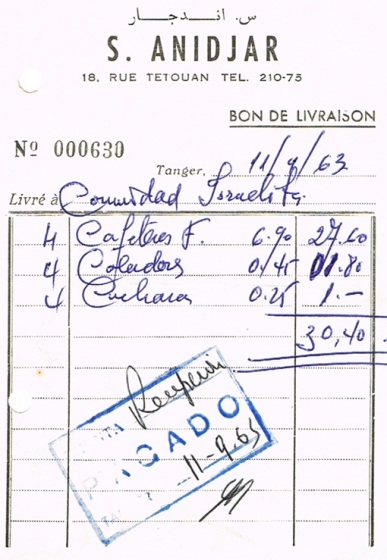 س. اندجار
S. ANIDJAR
18, RUE TETOUAN TEL. 210-75
BON DE LIVRAISON
Nº 000630
Tanger, 11/9/63
Livré à Comunidad Israelita
4 Cafeteras F. 6.90 27.60
4 Coladors 0.45 1.80
4 Cuchara 0.25 1.-
30,40
PAGADO
11-9-63